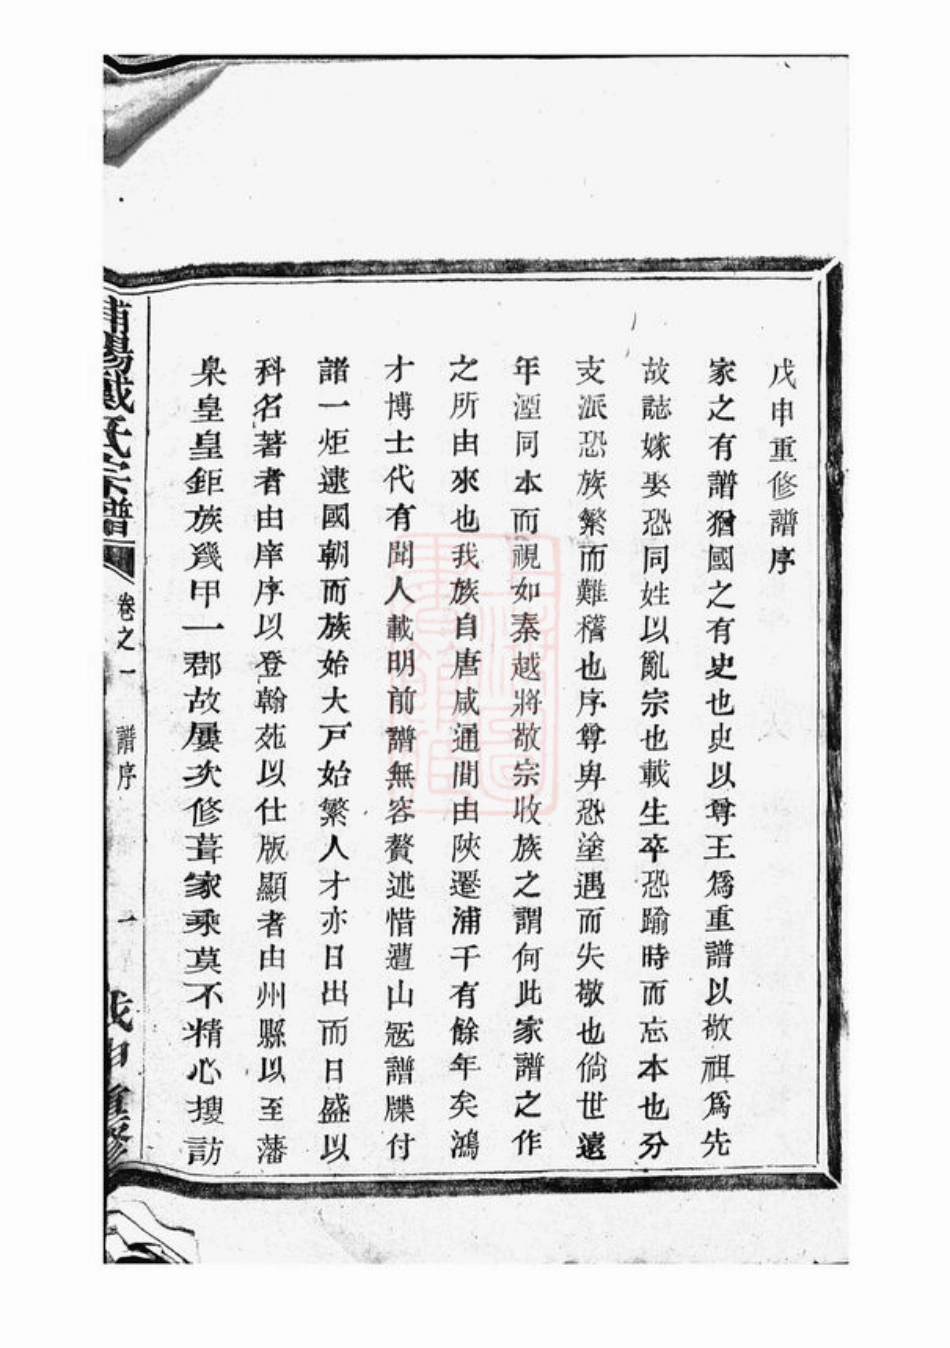 戊申重修譜序
家之有譜猶國之有史也史以尊王爲重譜以敬祖爲先
故誌嫁娶恐同姓以亂宗也載生卒恐踰時而忘本也分
支派恐族繁而難稽也序尊卑恐塗遇而失敬也倘世遠
年湮同本而視如秦越將敬宗收族之謂何此家譜之作
之所由來也我族自唐咸通間由陝遷浦千有餘年矣鴻
才博士代有聞人載明前譜無容贅述惜遭山寇譜牒付
諸一炬逮國朝而族始大戸始繁人才亦日出而日盛以
科名著者由庠序以登翰苑以仕版顯者由州縣以至藩
臬皇皇鉅族幾甲一郡故屢次修葺家乘莫不精心搜訪
浦陽戴氏宗譜
卷之一
譜序
一
戊申重修